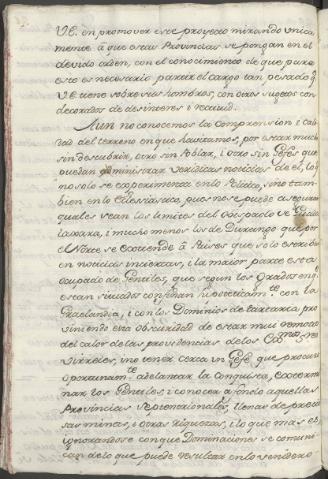 V.E. en promover este proyecto mirando unica
mente à que estas Provincias se pongan en el
devido orden, con el conocimiento de que para
esto es necesario partir el cargo tan pesado q
V.E. tiene sobre sus hombros, con otros sugetos con
decorados de desinteres i
Aun no conocemos la comprension i cali
dad del terreno en que havitamos, por estar mucho
sin descubrir, otro sin Poblar, i otro sin Gefes que
puedan administrar veridicas noticias de el, lo q
no solo se experimenta en lo Politico, sino tam
bien en lo Eclesiastico, pues no se puede asegurar
quales sean los limites del Obispado de
laxara, i mucho menos los de Durango que por
el Norte se extiende à Paises que solo
en noticias inciertas, i la maior parte está
ocupado de Gentiles, que segun los Grados en q
estan situados confinan hipoteticam.te con la
Groelandia, i con los Dominios de tartaria pro
viniendo esta obscuridad de estar mui remotos
del calor de las providencias de los Ex.mos S.res
Virreies, i no tener cerca un Gefe que procure
oportunam.te adelantar la conquista, exterminar
los Gentiles i conocer à fondo aquellas
Provincias Septentrionales, llenas de precio
sas minas, i otras riquezas, i lo que mas es
ignorandose con que Dominaciones se comuni
can de lo que puede resultar en lo venidero